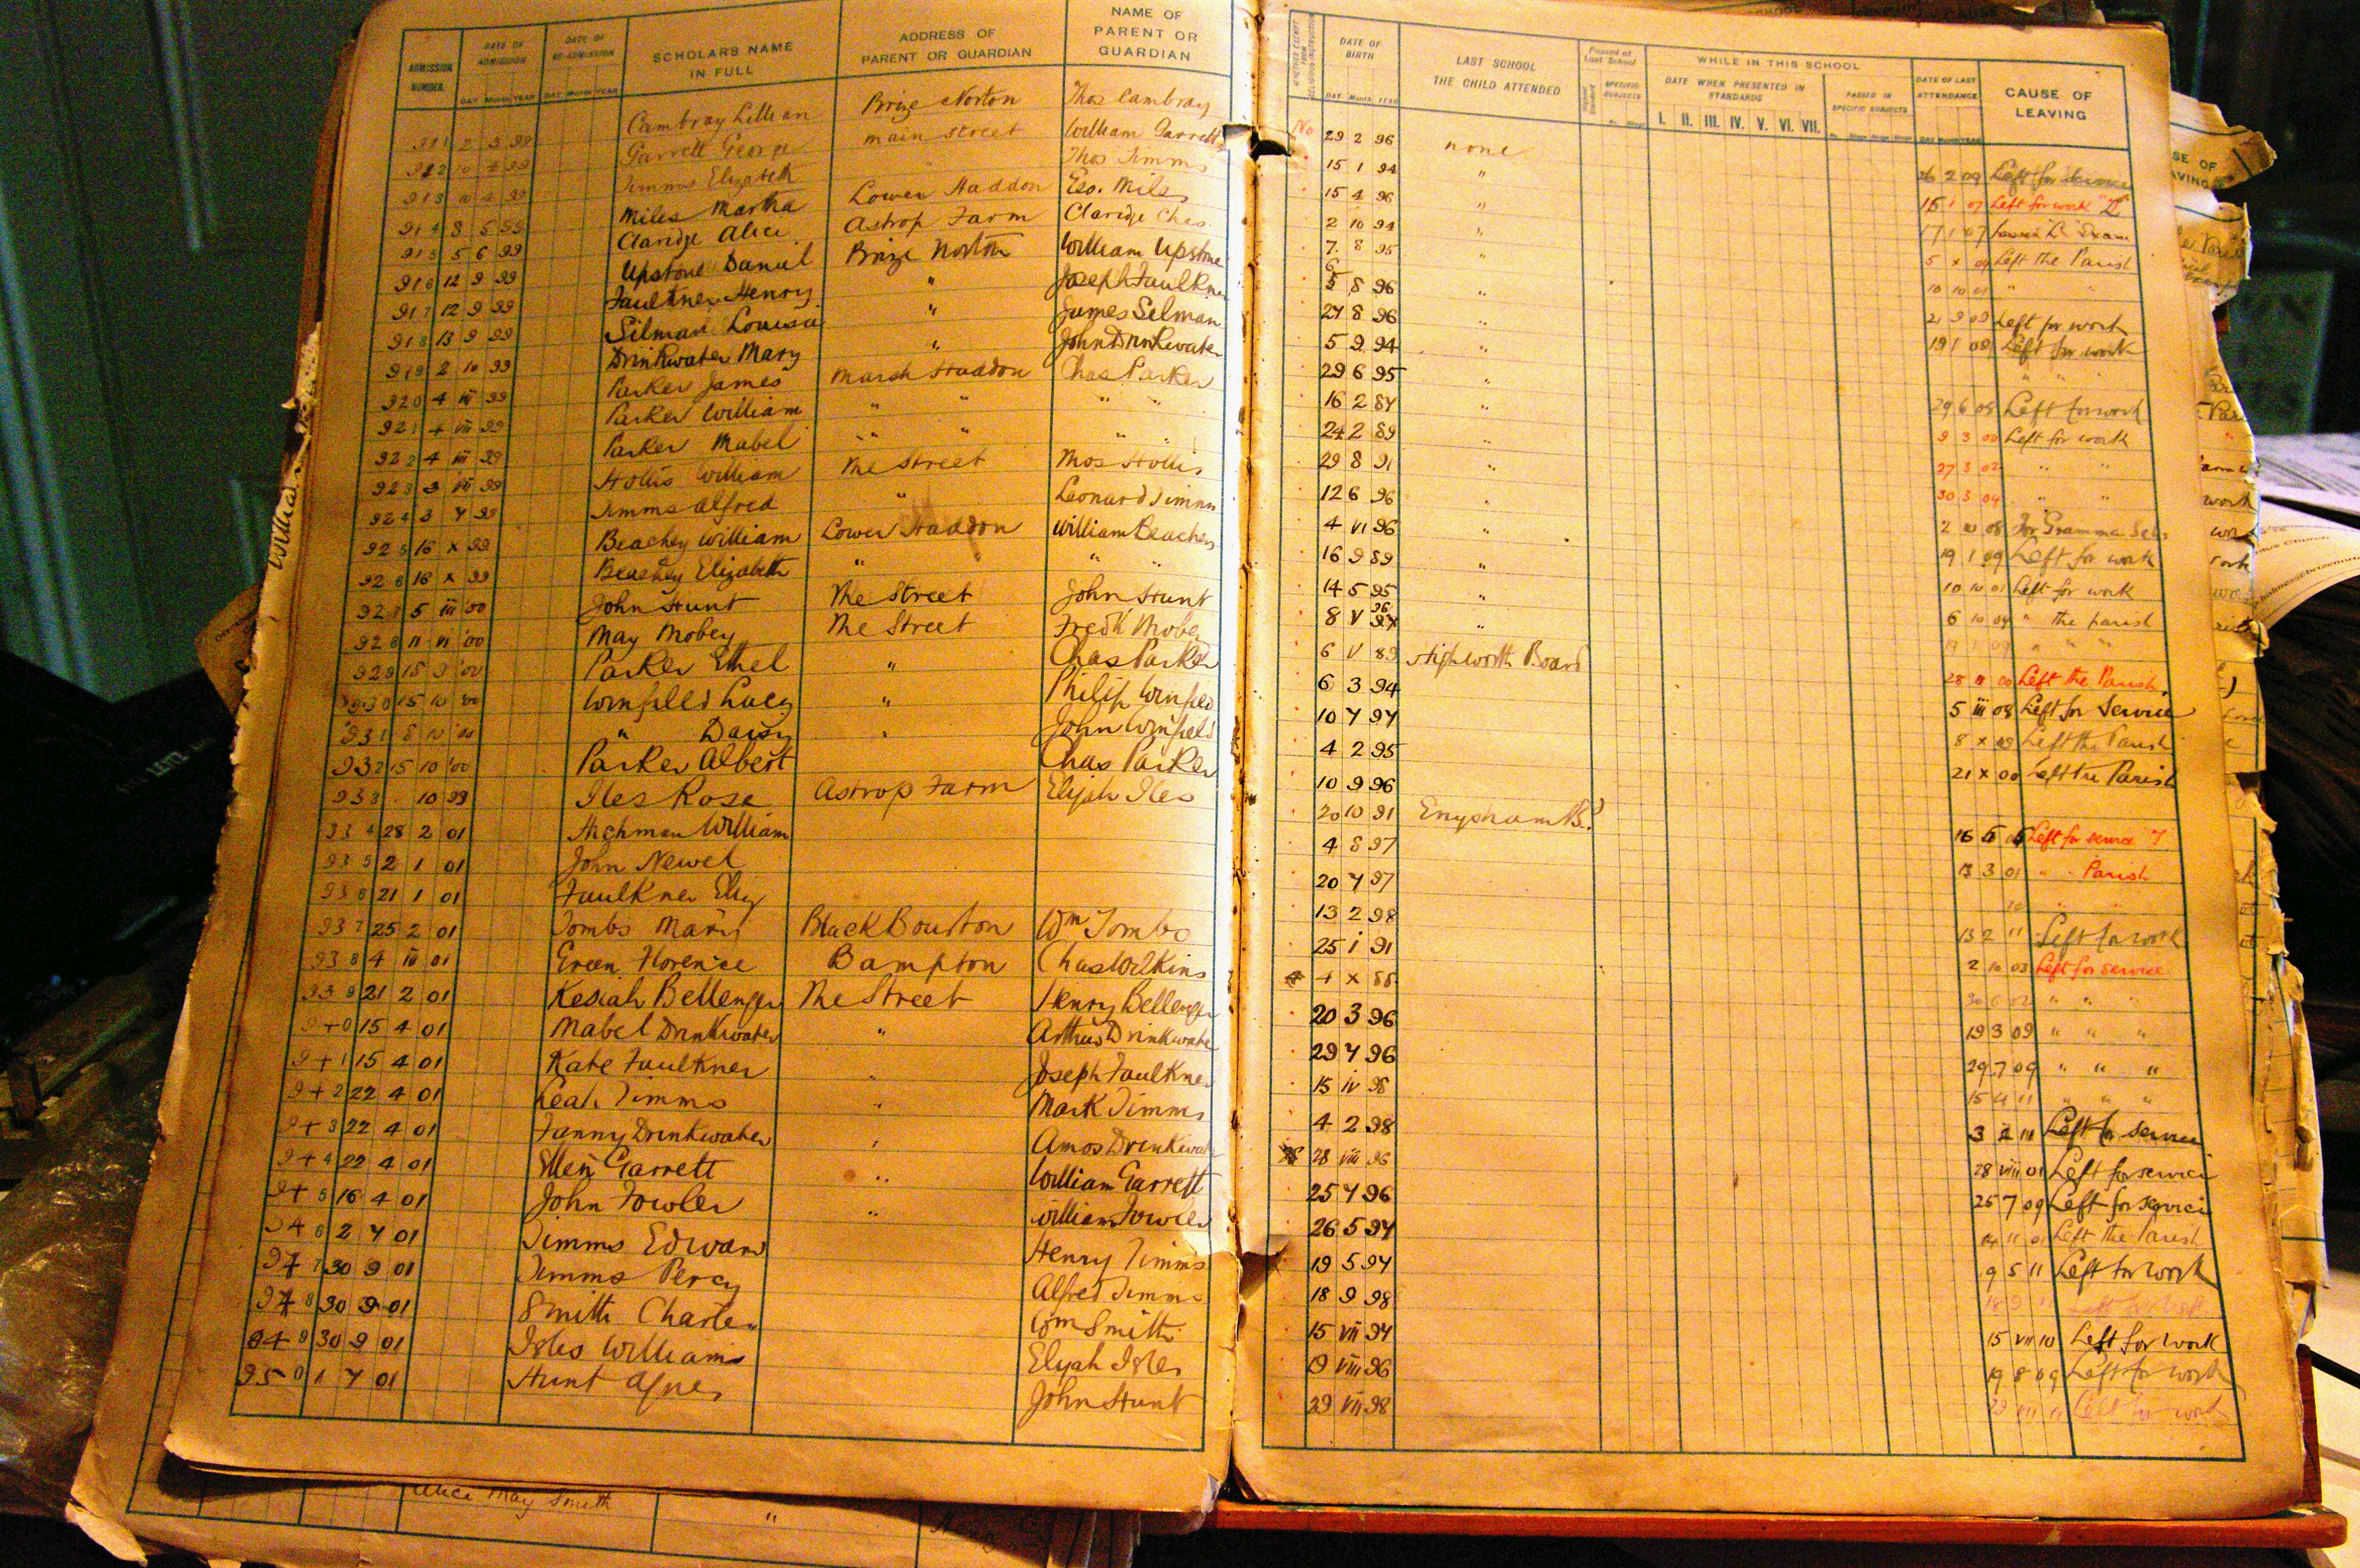 ADMISSION NUMBER. DATE OF ADMISSION DATE OF RE-ADMISSION SCHOLARS NAME IN FULL ADDRESS OF PARENT OR GUARDIAN NAME OF PARENT OR GUARDIAN
DAY Month YEAR DAY Month YEAR
911 2 9 99 Cambray Lillian Brize Norton Thos Cambray
912 10 4 99 Garrett George main street William Garrett
913 10 4 99 Timms Elizabeth Thos Timms
914 8 5 99 Miles Martha Lower Haddon Geo. Miles
915 5 6 99 Claridge Alice Astrop Farm Claridge Chas.
916 12 9 99 Upstone Daniel Brize Norton William Upstone
917 12 9 99 Faulkner Henry " Joseph Faulkner
918 13 9 99 Silman Louisa " James Selman
919 2 10 99 Drinkwater Mary " John Drinkwater
920 4 99 Parker James Marsh Haddon Chas Parker
921 4 99 Parker William " " " "
922 4 99 Parker Mabel " " " "
923 3 99 Hollis William The Street Thos Hollis
924 3 7 99 Timms Alfred " Leonard Timms
925 16 x 99 Beachey William Lower Haddon William Beachey
926 16 x 99 Beachey Elizabeth " " "
927 5 iii '00 John Hunt The Street John Hunt
928 11 '00 May Mobey The Street Fredk Mobey
929 15 9 '00 Parker Ethel " Chas Parker
930 15 10 '00 Winfield Lucy " Philip Winfield
931 8 10 '00 " Daisy " John Winfield
932 15 10 '00 Parker Albert Chas Parker
933 10 99 Iles Rose Astrop Farm Elijah Iles
934 28 2 01 William
935 2 1 01 John Newel
936 21 1 01 Faulkner Eliz
937 25 2 01 Tombs Mary Black Bourton Wm Tombs
938 4 iii 01 Green Florence Bampton Chas Wilkins
939 21 2 01 Kesiah Bellenger The Street Henry Bellenger
940 15 4 01 Mabel Drinkwater " Arthur Drinkwater
941 15 4 01 Kate Faulkner " Joseph Faulkner
942 22 4 01 Leah Timms " Mark Timms
943 22 4 01 Fanny Drinkwater " Amos Drinkwater
944 22 4 01 Ellen Garrett " William Garrett
945 16 4 01 John Fowler " William Fowler
946 2 7 01 Timms Edward Henry Timms
947 30 9 01 Timms Percy Alfred Timms
948 30 9 01 Smith Charles Wm Smith
949 30 9 01 Isles William Elijah Isles
950 1 7 01 Hunt Agnes John Hunt
Alice May Smith "
DATE OF BIRTH LAST SCHOOL THE CHILD ATTENDED Passed at Last School WHILE IN THIS SCHOOL DATE OF LAST ATTENDANCE CAUSE OF LEAVING
DAY Month YEAR SPECIFIC SUBJECTS DATE WHEN PRESENTED IN STANDARDS PASSED IN SPECIFIC SUBJECTS
I. II. III. IV. V. VI. VII.
No 29 2 96 none 26 2 09 Left for service
15 1 94 " 15 1 07 Left for work
15 4 96 " 17 1 07
2 10 94 " 5 x 04 Left the Parish
7 8 95 " 10 10 01 " "
5 8 96 " 21 9 09 Left for work
27 8 96 " 19 1 09 Left for work
5 9 94 " " "
29 6 95 " 29 6 08 Left for work
16 2 87 " 9 3 00 Left for work
24 2 89 " 27 3 02 " "
29 8 91 " 30 3 04 " "
12 6 96 " 2 10 08 For Gramma
4 VI 96 " 19 1 09 Left for work
16 9 89 " 10 10 01 Left for work
14 5 95 " 6 10 04 " the parish
8 V 96 " " "
6 V 89 Highworth Board 28 11 00 Left the Parish
6 3 94 5 iii 08 Left for Service
10 7 97 8 x 09 Left the Parish
4 2 95 21 x 00 Left the Parish
10 9 96
20 10 91 16 5 Left for service
4 8 97 13 3 01 " Parish
20 7 97 " "
13 2 98 13 2 11 Left for work
25 1 91 2 10 03 Left for service
4 x 88 30 6 02 " " "
20 3 96 19 3 09 " " "
29 7 96 29 7 09 " " "
15 iv 98 15 4 11 " " "
4 2 98 3 2 11 Left for service
28 viii 96 28 viii 01 Left for service
25 7 96 25 7 09 Left for service
26 5 97 14 11 01 Left the Parish
19 5 97 9 5 11 Left for work
18 9 98 18 9 Left for work
15 VII 97 15 VII 10 Left for work
19 VIII 96 19 8 09 Left for work
29 VII 98 Left for work